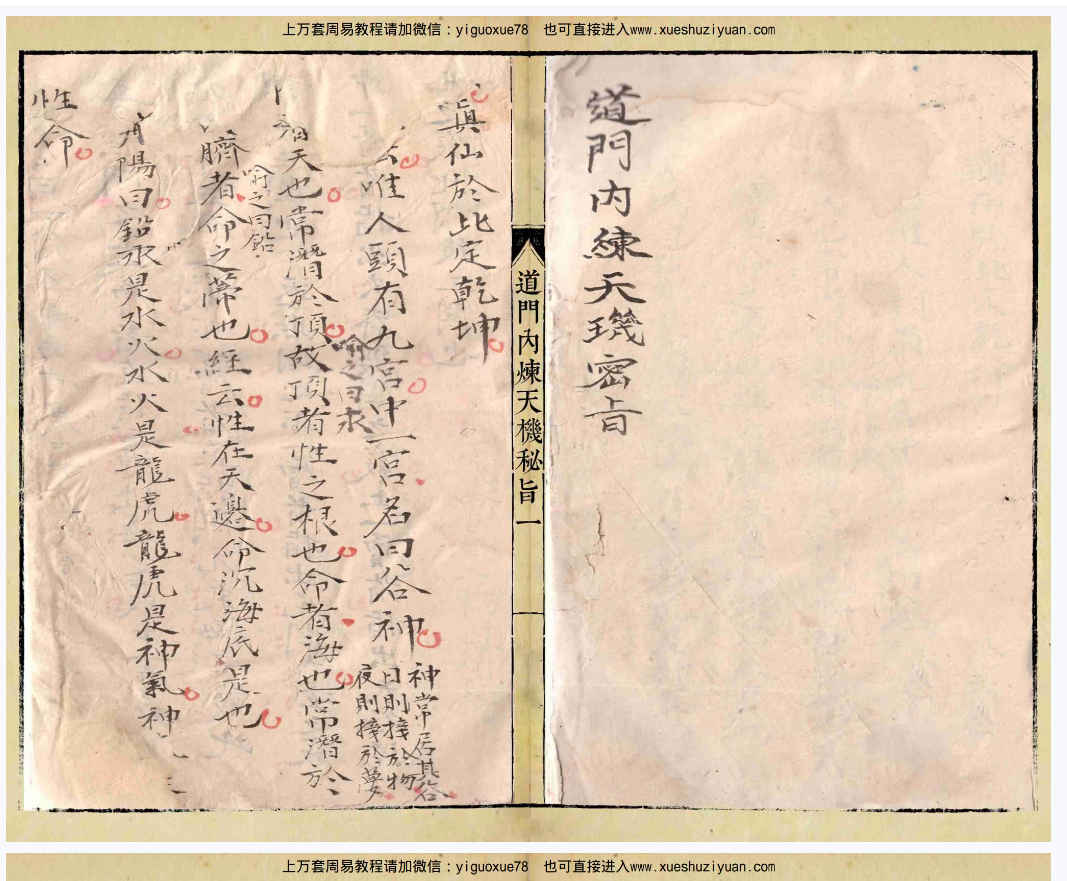 上万套周易教程请加微信：yiguoxue78　也可直接进入www.xueshuziyuan.com
道門内練天璣密旨
道門內煉天機秘旨一
真仙於此定乾坤
唯人頭有九宮中一宮名曰谷神
神常居其谷
日則接於物
夜則接於夢
天也常潛於頂故頂者性之根也命者海也常潛於
喻之曰汞
臍者命之蒂也經云性在天邊命沉海底是也
喻之曰鉛
陽曰鉛汞是水火水火是龍虎龍虎是神氣神
性命
上万套周易教程请加微信：yiguoxue78　也可直接进入www.xueshuziyuan.com